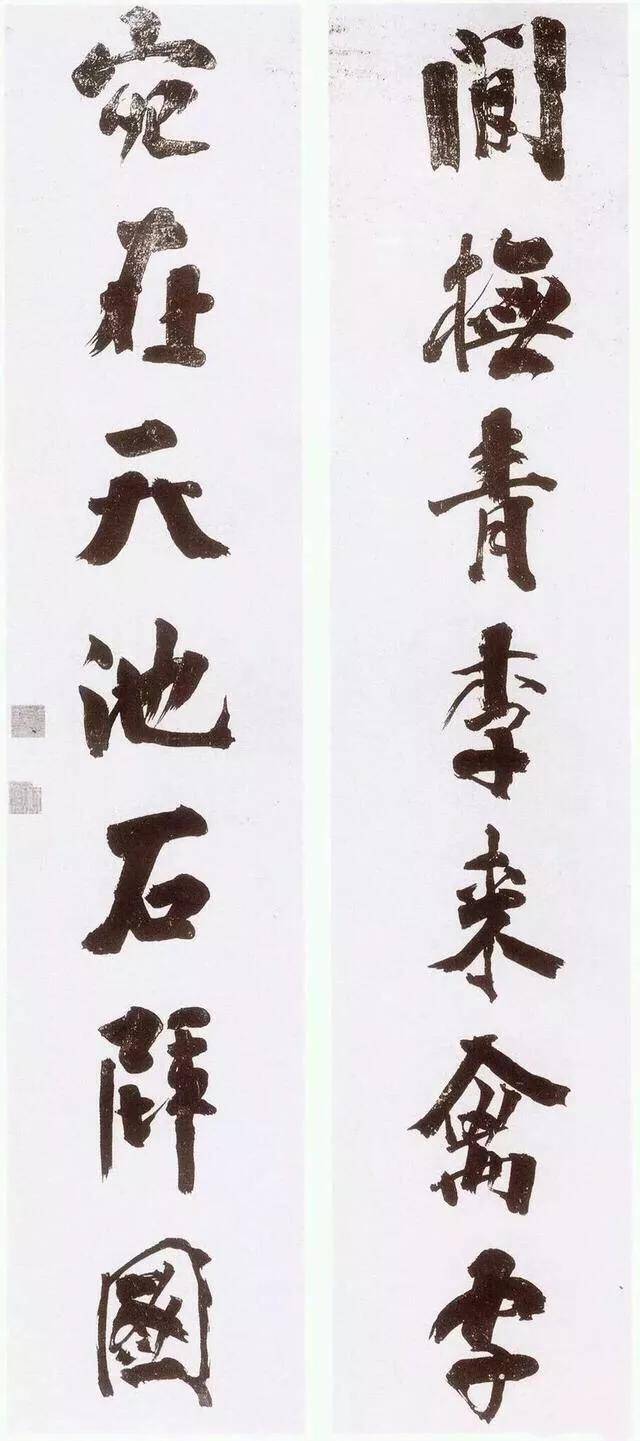 閒撫青李來禽字
宛在天池石壁圖